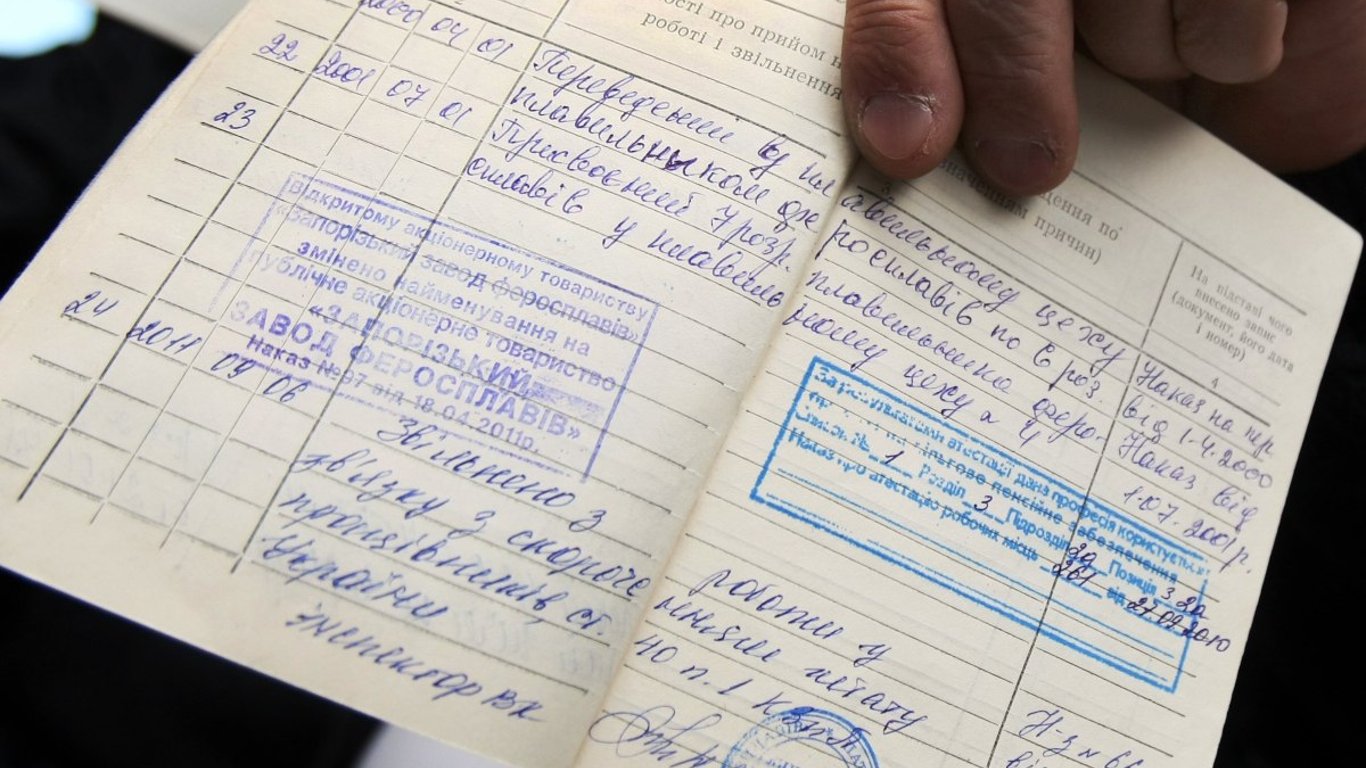 ості про прийом н
роботі і звільнення
значенням причин)
щення по
На підставі чого
внесено запис
(документ, його дата
і номер)
3
4
2000 04 01 Переведений у плавильному цеху Наказ на пер.
22 плавильником феросплавів по 6 роз. від 1.4.2000
2001 07 01 Присвоєний 7 розр. плавильника феро- Наказ від
23 сплавів у плавильному цеху № 4 1.07.2001р.
Відкритому акціонерному товариству
«Запорізький завод феросплавів»
змінено найменування на
публічне акціонерне товариство
«ЗАПОРІЗЬКИЙ
ЗАВОД ФЕРОСПЛАВІВ»
Наказ №97 від 18.04.2011р.
За результатами атестації дана професія користується
пільгове пенсійне забезпечення
Список № 1 Розділ 3 Підрозділ 2а Позиція 3.2а
Наказ про атестацію робочих місць 261 від 27.09.2010
24 2011 09 06 Звільнено з роботи у
звязку з скороче нням штату
працівників, ст. 40 п. 1 КЗпП
України
інспектор ВК
Н-з №